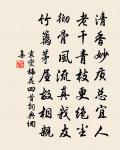 清香妙质总宜人
老干青枝更绝尘
彻骨风流真我友
竹篱茅屋教相亲
袁燮梅花四首词典网
春